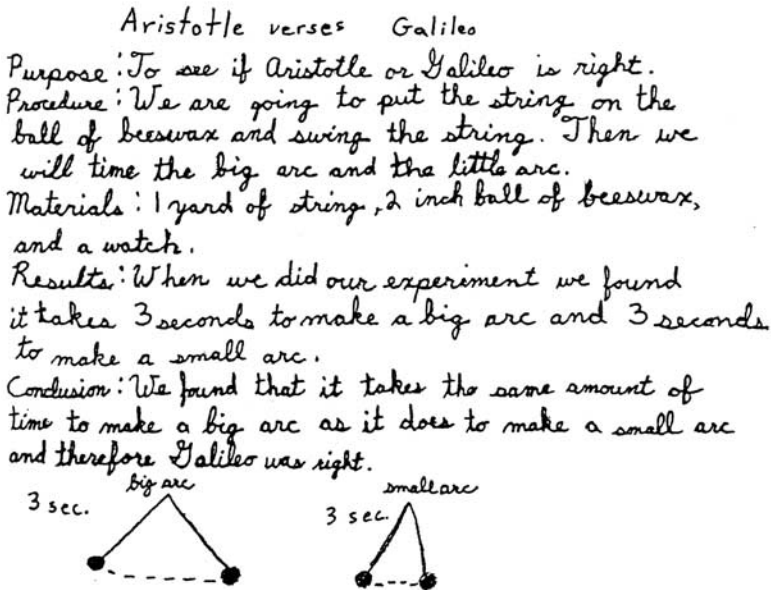 Aristotle verses Galileo
Purpose: To see if Aristotle or Galileo is right.
Procedure: We are going to put the string on the
ball of beeswax and swing the string. Then we
will time the big arc and the little arc.
Materials: 1 yard of string, 2 inch ball of beeswax,
and a watch.
Results: When we did our experiment we found
it takes 3 seconds to make a big arc and 3 seconds
to make a small arc.
Conclusion: We found that it takes the same amount of
time to make a big arc as it does to make a small arc
and therefore Galileo was right.
big arc
3 sec.
small arc
3 sec.